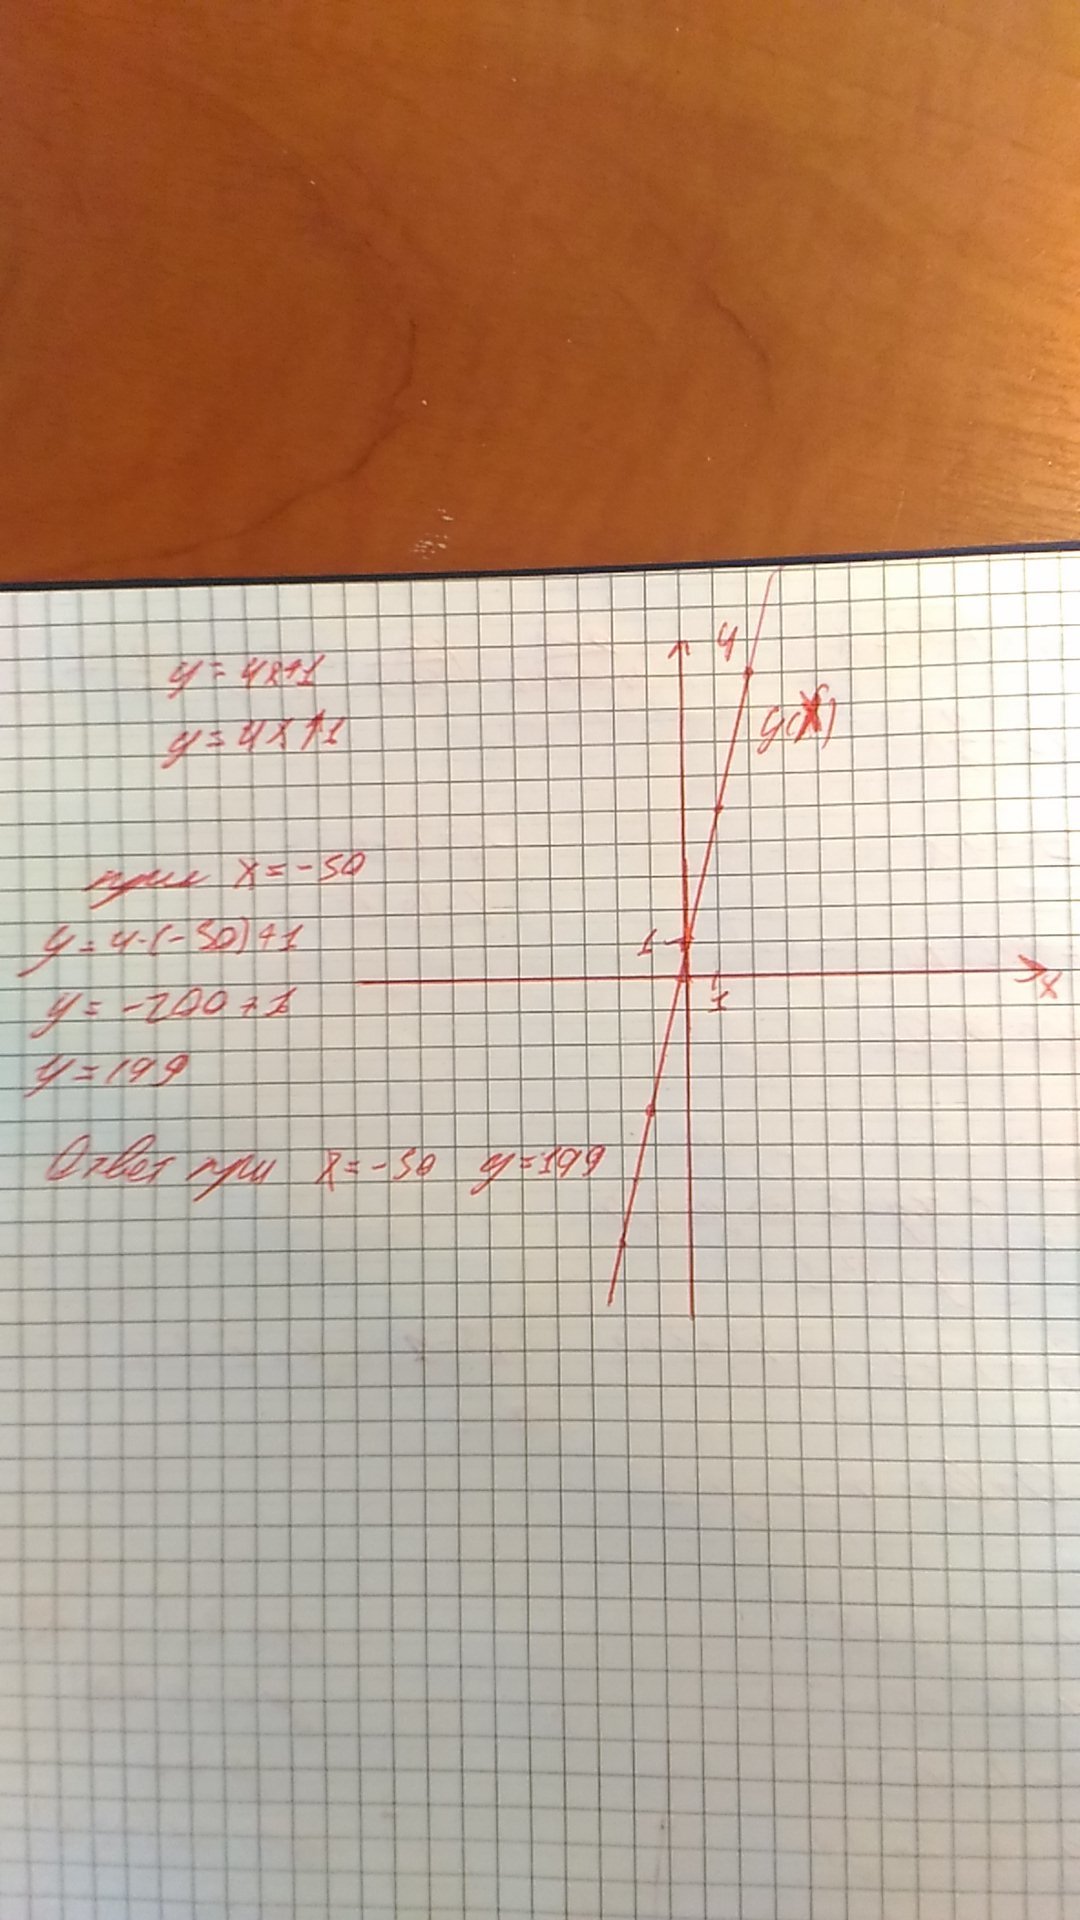 y = 4x+1
y = 4x+1
при x = -50
y = 4·(-50)+1
y = -200+1
y = 199
Ответ при x = -50 y = 199
y
y(x)
1
1
x